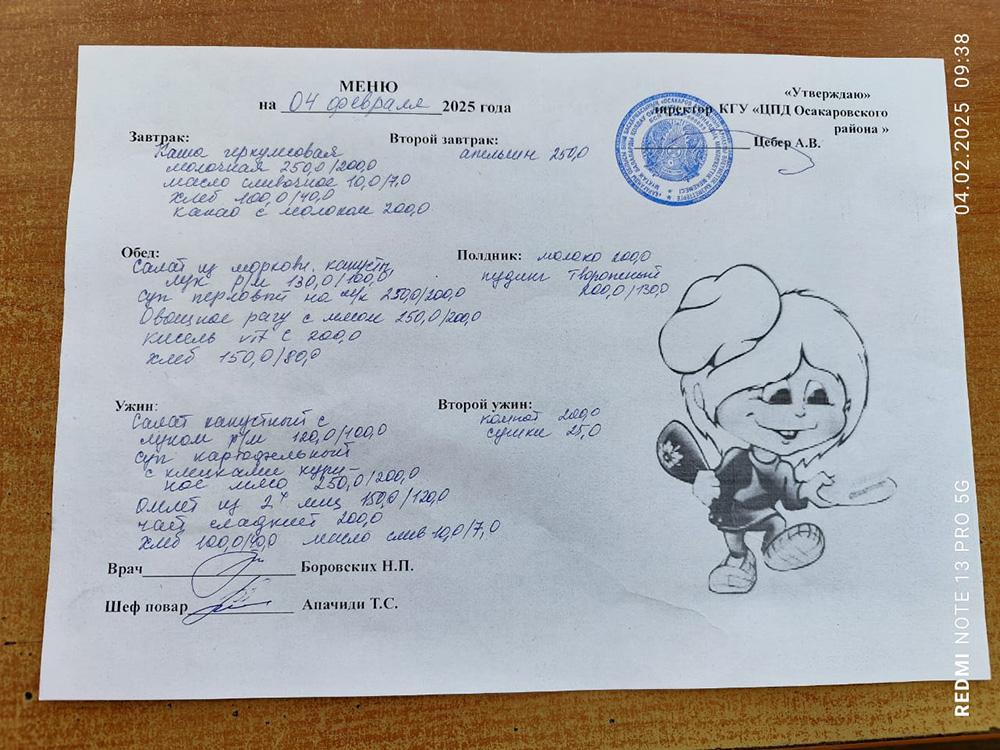 МЕНЮ
на 04 февраля 2025 года
«Утверждаю»
директор КГУ «ЦПД Осакаровского
района »
Цебер А.В.
Завтрак:
Каша геркулесовая
молочная 250,0/200,0
масло сливочное 10,0/7,0
хлеб 100,0/40,0
какао с молоком 200,0
Второй завтрак:
апельсин 250,0
Обед:
Салат из моркови, капусты,
лук р/м 130,0/100,0
суп перловый на м/к 250,0/200,0
Овощное рагу с мясом 250,0/200,0
кисель vit C 200,0
хлеб 150,0/80,0
Полдник: молоко 200,0
пудинг творожный
200,0/130,0
Ужин:
Салат капустный с
луком р/м 120,0/100,0
суп картофельный
с клецками кури-
ное мясо 250,0/200,0
Омлет из 2х яиц 150,0/120,0
чай сладкий 200,0
хлеб масло слив 10,0/7,0
Второй ужин:
компот 200,0
сушки 25,0
Врач Боровских Н.П.
Шеф повар Апачиди Т.С.
REDMI NOTE 13 PRO 5G 04.02.2025 09:38